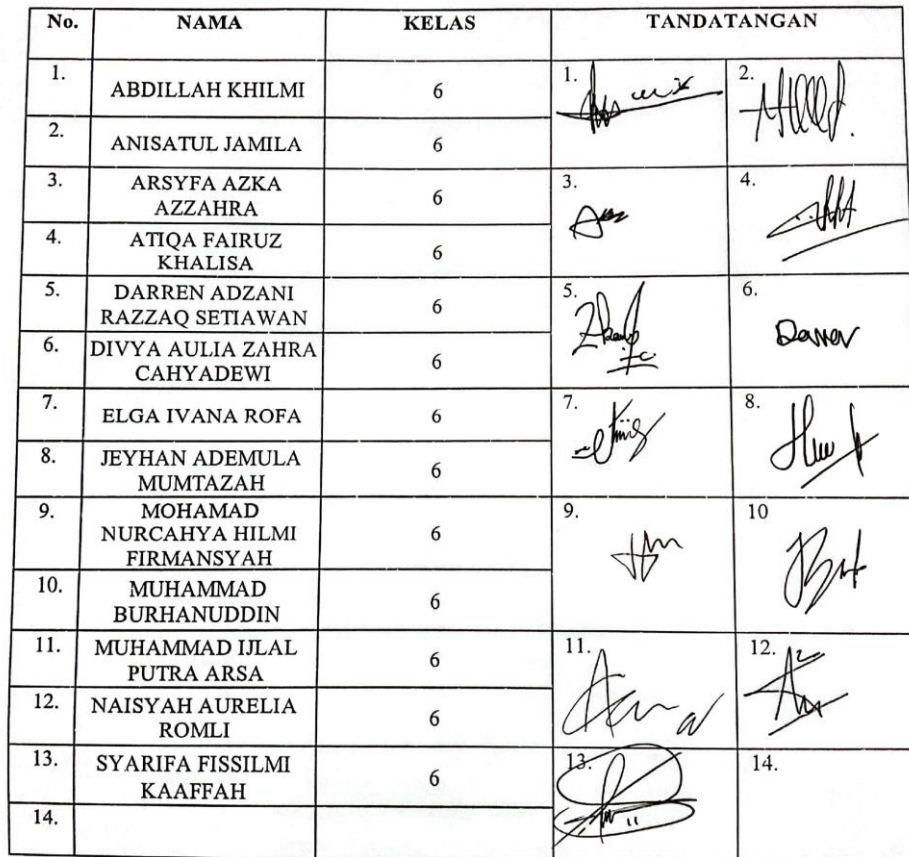 No. NAMA KELAS TANDATANGAN
1. ABDILLAH KHILMI 6 1. 2.
2. ANISATUL JAMILA 6
3. ARSYFA AZKA 6 3. 4.
AZZAHRA
4. ATIQA FAIRUZ 6
KHALISA
5. DARREN ADZANI 6 5. 6. Darren
RAZZAQ SETIAWAN
6. DIVYA AULIA ZAHRA 6
CAHYADEWI
7. ELGA IVANA ROFA 6 7. 8.
8. JEYHAN ADEMULA 6
MUMTAZAH
9. MOHAMAD 6 9. 10
NURCAHYA HILMI
FIRMANSYAH
10. MUHAMMAD 6
BURHANUDDIN
11. MUHAMMAD IJLAL 6 11. 12.
PUTRA ARSA
12. NAISYAH AURELIA 6
ROMLI
13. SYARIFA FISSILMI 6 13. 14.
KAAFFAH
14.